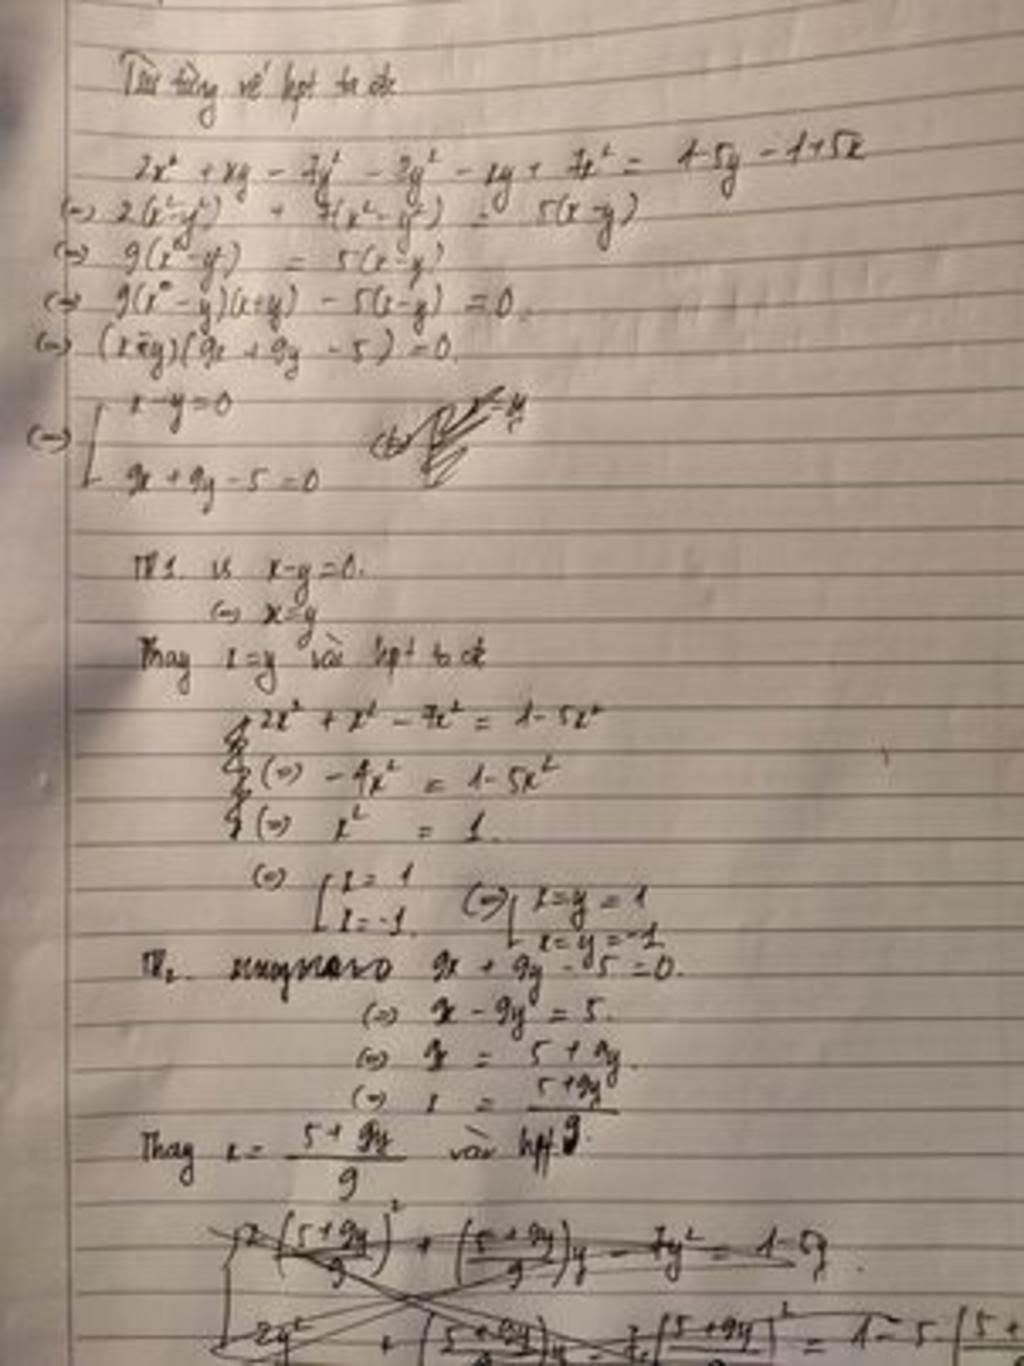 Trừ từng vế hpt ta đc
2x² + xy - 7y² - 2y² - xy + 7x² = 1-5y - 1+5x
(=) 2(x²-y²) + 7(x²-y²) = 5(x-y)
(=) 9(x²-y²) = 5(x-y)
(=) 9(x-y)(x+y) - 5(x-y) = 0.
(=) (x-y)(9x + 9y - 5) = 0.
(=) [ x-y=0
9x + 9y - 5 = 0
TH1. x-y=0.
(=) x=y
Thay x=y vào hpt ta đc
2x² + x² - 7x² = 1-5x²
(=) -4x² = 1-5x²
(=) x² = 1.
(=) [ x = 1 (=) [ x=y = 1
x = -1. x=y = -1
TH2. 9x + 9y - 5 = 0.
(=) 9x - 9y = 5.
(=) 9x = 5 + 9y.
(=) x = (5+9y)/9.
Thay x = (5+9y)/9 vào hpt
2((5+9y)/9)² + ((5+9y)/9)y - 7y² = 1-5y.
2y² + ((5+9y)/9)y - 7((5+9y)/9)² = 1 - 5.(5+